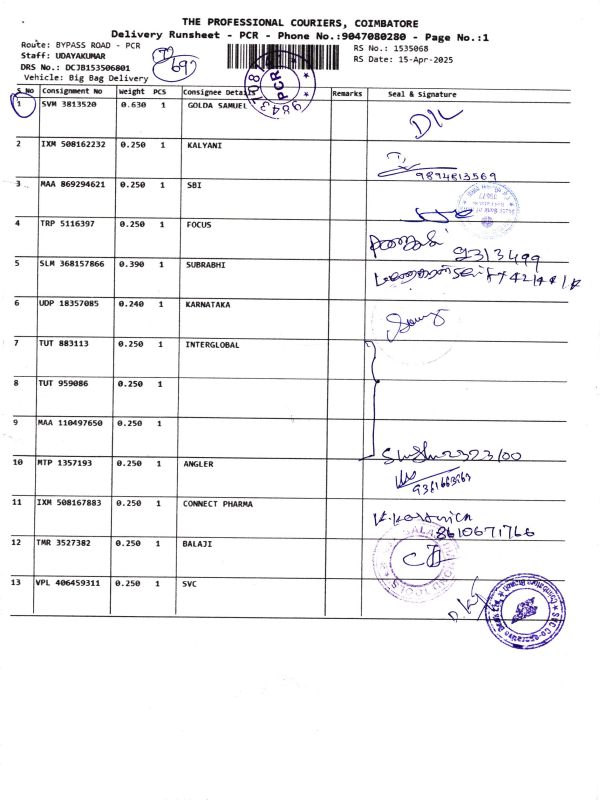 THE PROFESSIONAL COURIERS, COIMBATORE
Delivery Runsheet - PCR - Phone No.:9047080280 - Page No.:1
Route: BYPASS ROAD - PCR
RS No.: 1535068
Staff: UDAYAKUMAR
RS Date: 15-Apr-2025
DRS No.: DCJB153506801
Vehicle: Big Bag Delivery
PCR
S No Consignment No Weight PCS Consignee Details Remarks Seal & Signature
1 SVM 3813520 0.630 1 GOLDA SAMUEL
2 IXM 508162232 0.250 1 KALYANI
9894813569
3 MAA 869294621 0.250 1 SBI
4 TRP 5116397 0.250 1 FOCUS
5 SLM 368157866 0.390 1 SUBRABHI
6 UDP 18357085 0.240 1 KARNATAKA
7 TUT 883113 0.250 1 INTERGLOBAL
8 TUT 959086 0.250 1
9 MAA 110497650 0.250 1
10 MTP 1357193 0.250 1 ANGLER
11 IXM 508167883 0.250 1 CONNECT PHARMA
8610671766
12 TMR 3527382 0.250 1 BALAJI
13 VPL 406459311 0.250 1 SVC